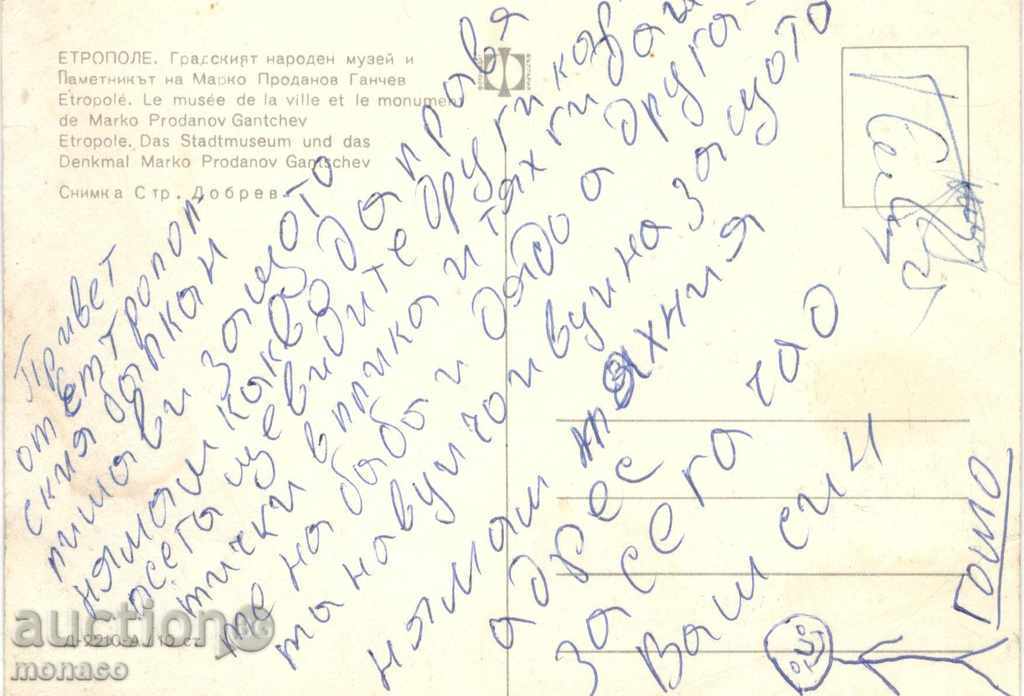 ЕТРОПОЛЕ. Градският народен музей и
Паметникът на Марко Проданов Ганчев
Etropolé. Le musée de la ville et le monument
de Marko Prodanov Gantchev
Etropole. Das Stadtmuseum und das
Denkmal Marko Prodanov Gantschev
Снимка Стр. Добрев
Привет
от Етропол
ския балкан
пиша ви защото
нямам какво да правя
а сега ще видите други кова
тички в
то на баба и дядо а друга
та на вуйчо и вуйна защото
нямам техния
адрес
засега чао
Ваш син
гошо
Д-2210-А/10 ст.
auction
monaco